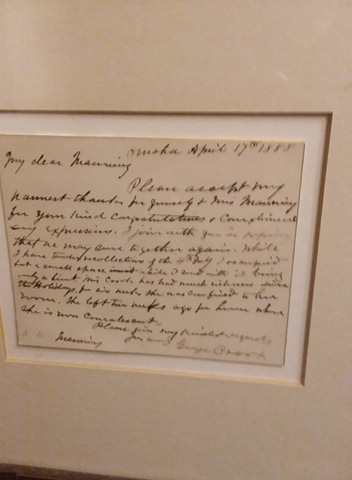 Omaha April 17th 1888
My dear Manning
Please accept my
warmest thanks for yourself & Mrs Manning
for your kind congratulations & Compliment
ary expressions. I join with you in hoping
that we may serve together again. While
I have tender recollections of the 4th July I occupied
but a small space
only a Mrs Crook has had much sickness since
the Holidays, for six weeks she was confined to her
room. She left two weeks ago for home where
she is now Convalescent.
Please give my kindest regards
to Manning
George Crook